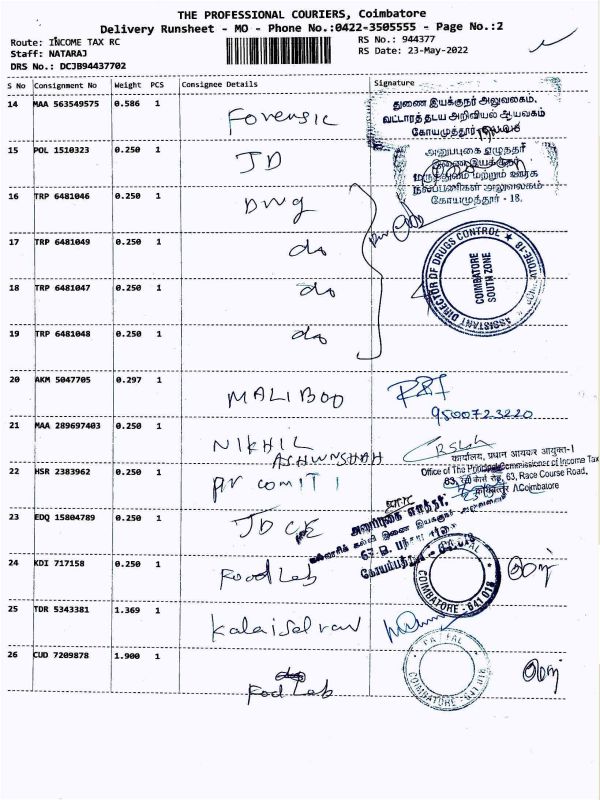 THE PROFESSIONAL COURIERS, Coimbatore
Delivery Runsheet - MO - Phone No.:0422-3505555 - Page No.:2
Route: INCOME TAX RC
RS No.: 944377
Staff: NATARAJ
RS Date: 23-May-2022
DRS No.: DCJB94437702
S No Consignment No Weight PCS Consignee Details Signature
14 MAA 563549575 0.586 1 Forensic
துணை இயக்குநர் அலுவலகம்,
வட்டாரத் தடய அறிவியல் ஆய்வகம்
கோயமுத்தூர்
15 POL 1510323 0.250 1 JD
அனுப்புகை எழுத்தர்
இணை இயக்குநர்
மருத்துவம் மற்றும் ஊரக
நலப்பணிகள் அலுவலகம்
கோயமுத்தூர் - 18.
16 TRP 6481046 0.250 1 Drug
17 TRP 6481049 0.250 1 do
ASSISTANT DIRECTOR OF DRUGS CONTROL
COIMBATORE
SOUTH ZONE
18 TRP 6481047 0.250 1 do
19 TRP 6481048 0.250 1 do
20 AKM 5047705 0.297 1 MALIBOO
9500723220
21 MAA 289697403 0.250 1 NIKHIL
ASHWNSHAH
कार्यालय, प्रधान आयकर आयुक्त-1
Office of The Principal Commissioner of Income Tax
63, रेस कोर्स रोड, 63, Race Course Road,
कोयम्बत्तूर /Coimbatore
22 HSR 2383962 0.250 1 pr comiT 1
23 EDQ 15804789 0.250 1 JD CE
24 KDI 717158 0.250 1 Food Lab
COIMBATORE - 641 018
25 TDR 5343381 1.369 1 Kalaiselvan
26 CUD 7209878 1.900 1 do
Food Lab
COIMBATORE - 641 018